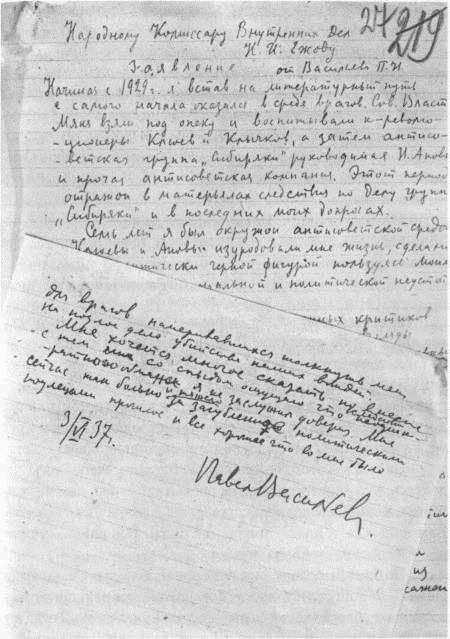 27
219
Народному Комиссару Внутренних Дел
Н. И. Ежову
Заявление от Васильева П. Н.
Начиная с 1929 г. я встав на литературный путь
с самого начала оказался в среде врагов Сов. Власти
Меня взяли под опеку и воспитывали к-револю-
-ционеры Клюев и Клычков, а затем антисо-
-ветская группа „Сибиряки" руководимая Н. Ановым
и прочая антисоветская компания. Этот период
отражен в матерьялах следствия по делу группы
„Сибиряки" и в последних моих допросах.
Семь лет я был окружен антисоветской средой
Клюевы и Ановы изуродовали мне жизнь, сделали
политически черной фигурой пользуясь моей
мальной и политической неустой
нных критиков
для врагов намеривавшихся толкнуть меня
на подлое дело убийства наших вождей.
Мне хочется многое сказать но вместе
с тем со стыдом ощущаю что
я не заслужил доверия. Мне
сейчас так больно за загубленное политическими
подлецами прошлое и все хорошее что во мне было
3/VI 37.
Павел Васильев.
из
самой